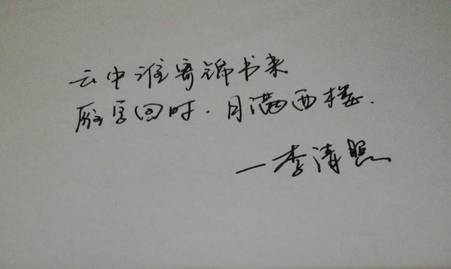 云中谁寄锦书来
雁字回时.月满西楼.
—李清照